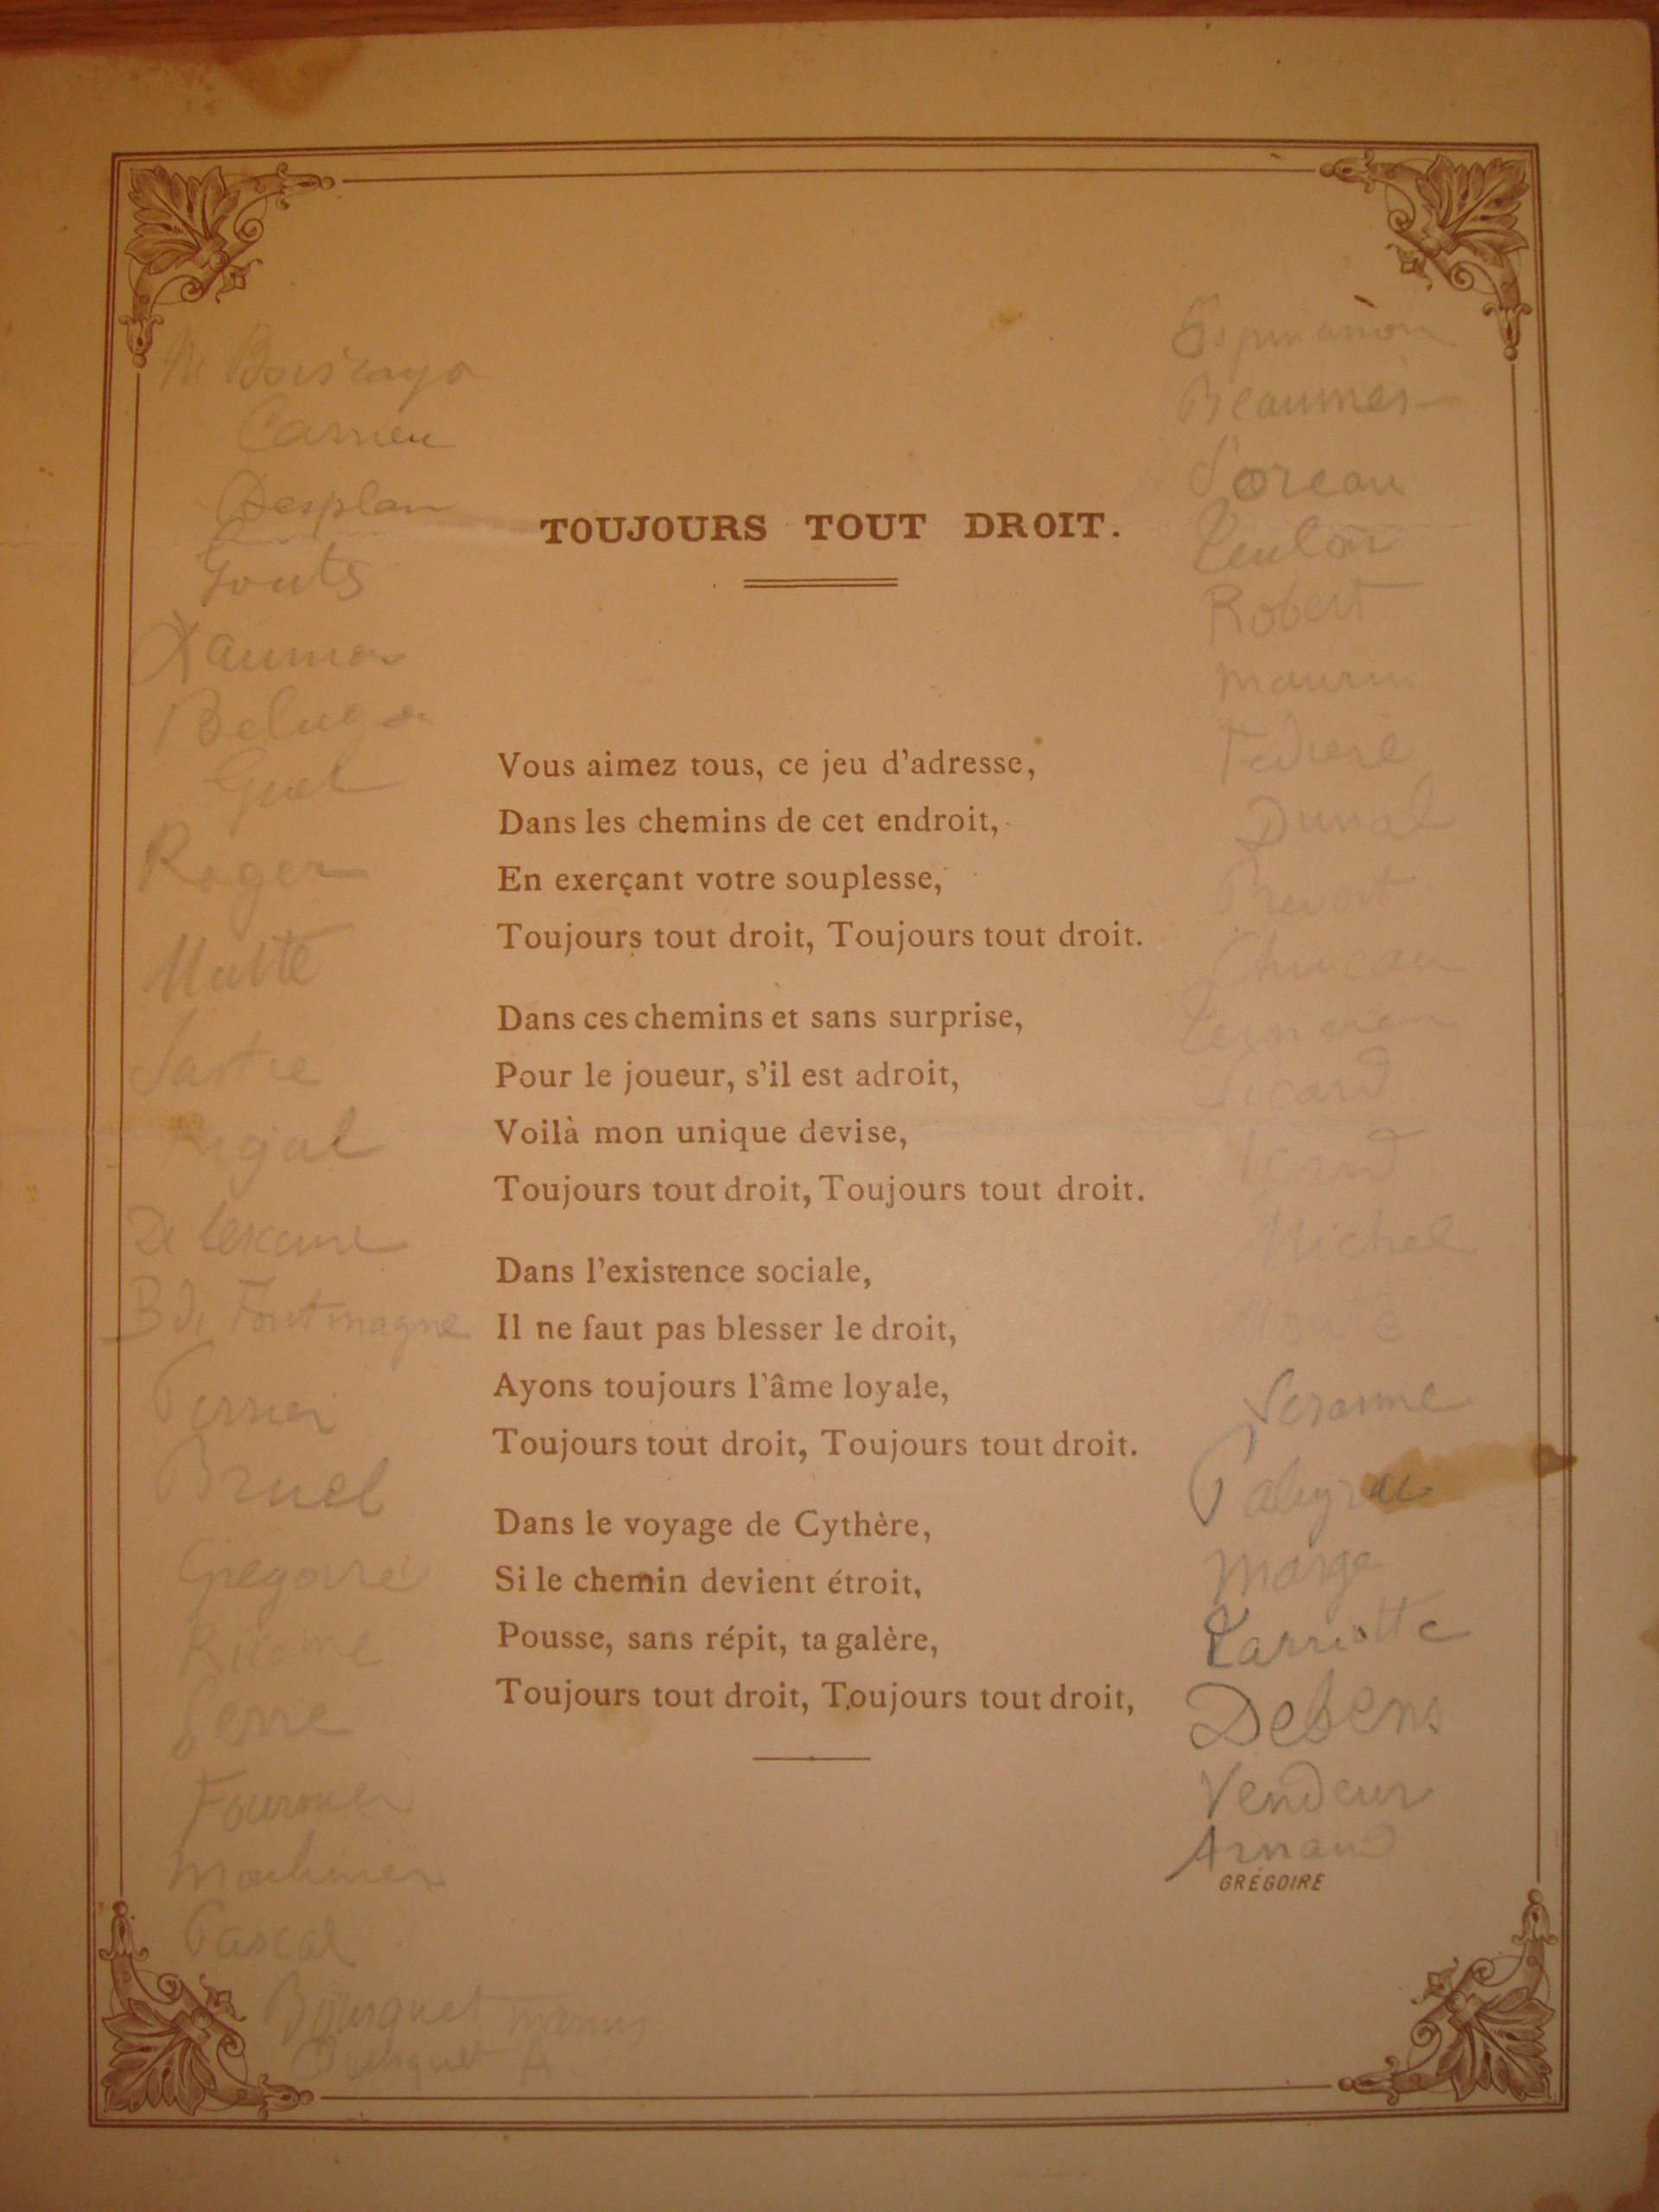 TOUJOURS TOUT DROIT.
Vous aimez tous, ce jeu d'adresse,
Dans les chemins de cet endroit,
En exerçant votre souplesse,
Toujours tout droit, Toujours tout droit.
Dans ces chemins et sans surprise,
Pour le joueur, s'il est adroit,
Voilà mon unique devise,
Toujours tout droit, Toujours tout droit.
Dans l'existence sociale,
Il ne faut pas blesser le droit,
Ayons toujours l'âme loyale,
Toujours tout droit, Toujours tout droit.
Dans le voyage de Cythère,
Si le chemin devient étroit,
Pousse, sans répit, ta galère,
Toujours tout droit, Toujours tout droit,
GRÉGOIRE
Desplan
Gouts
Roger
Sastre
Rigal
Fontmagne
Bruel
Gregoire
Ricome
Serre
Fournier
Moulinier
Pascal
Bousquet
Bousquet A
Soreau
Robert
Maurin
Duval
Prevost
Sicard
Icard
Michel
Seranne
Marge
Debens
Vendeur
Arnaud